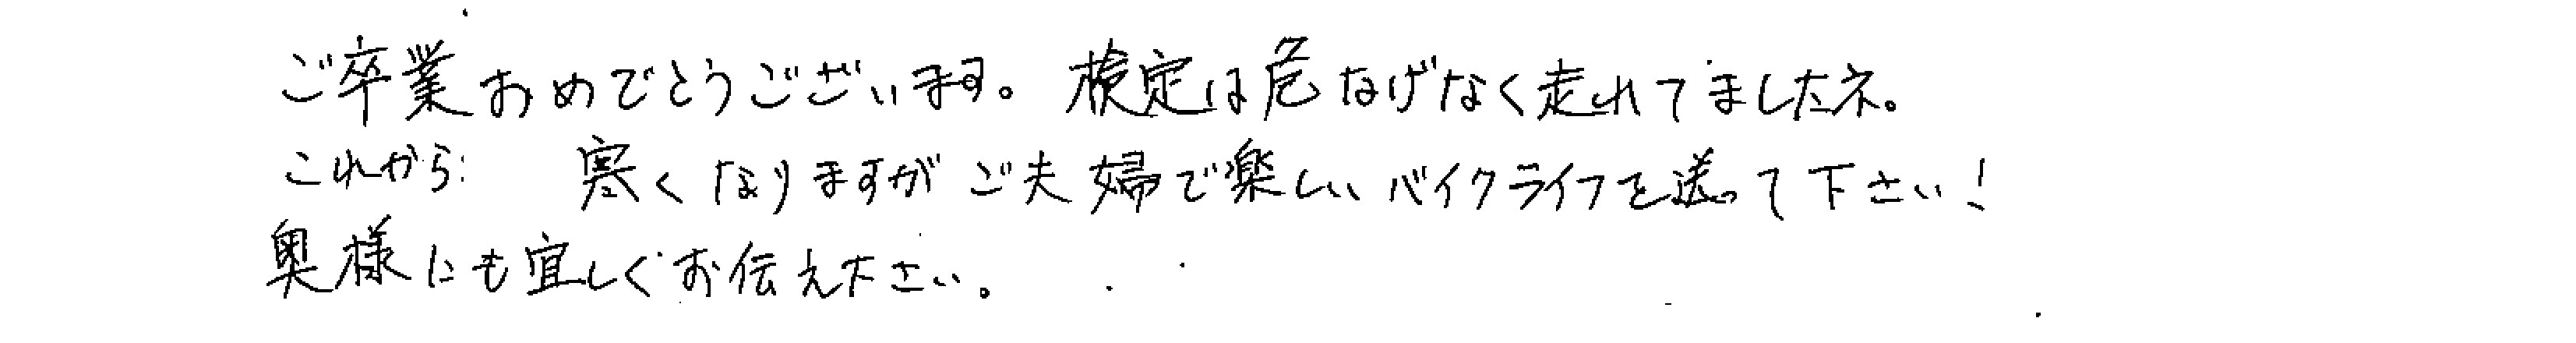 ご卒業おめでとうございます。検定は危なげなく走れてましたネ。
これから 寒くなりますがご夫婦で楽しいバイクライフを送って下さい!
奥様にも宜しくお伝え下さい。